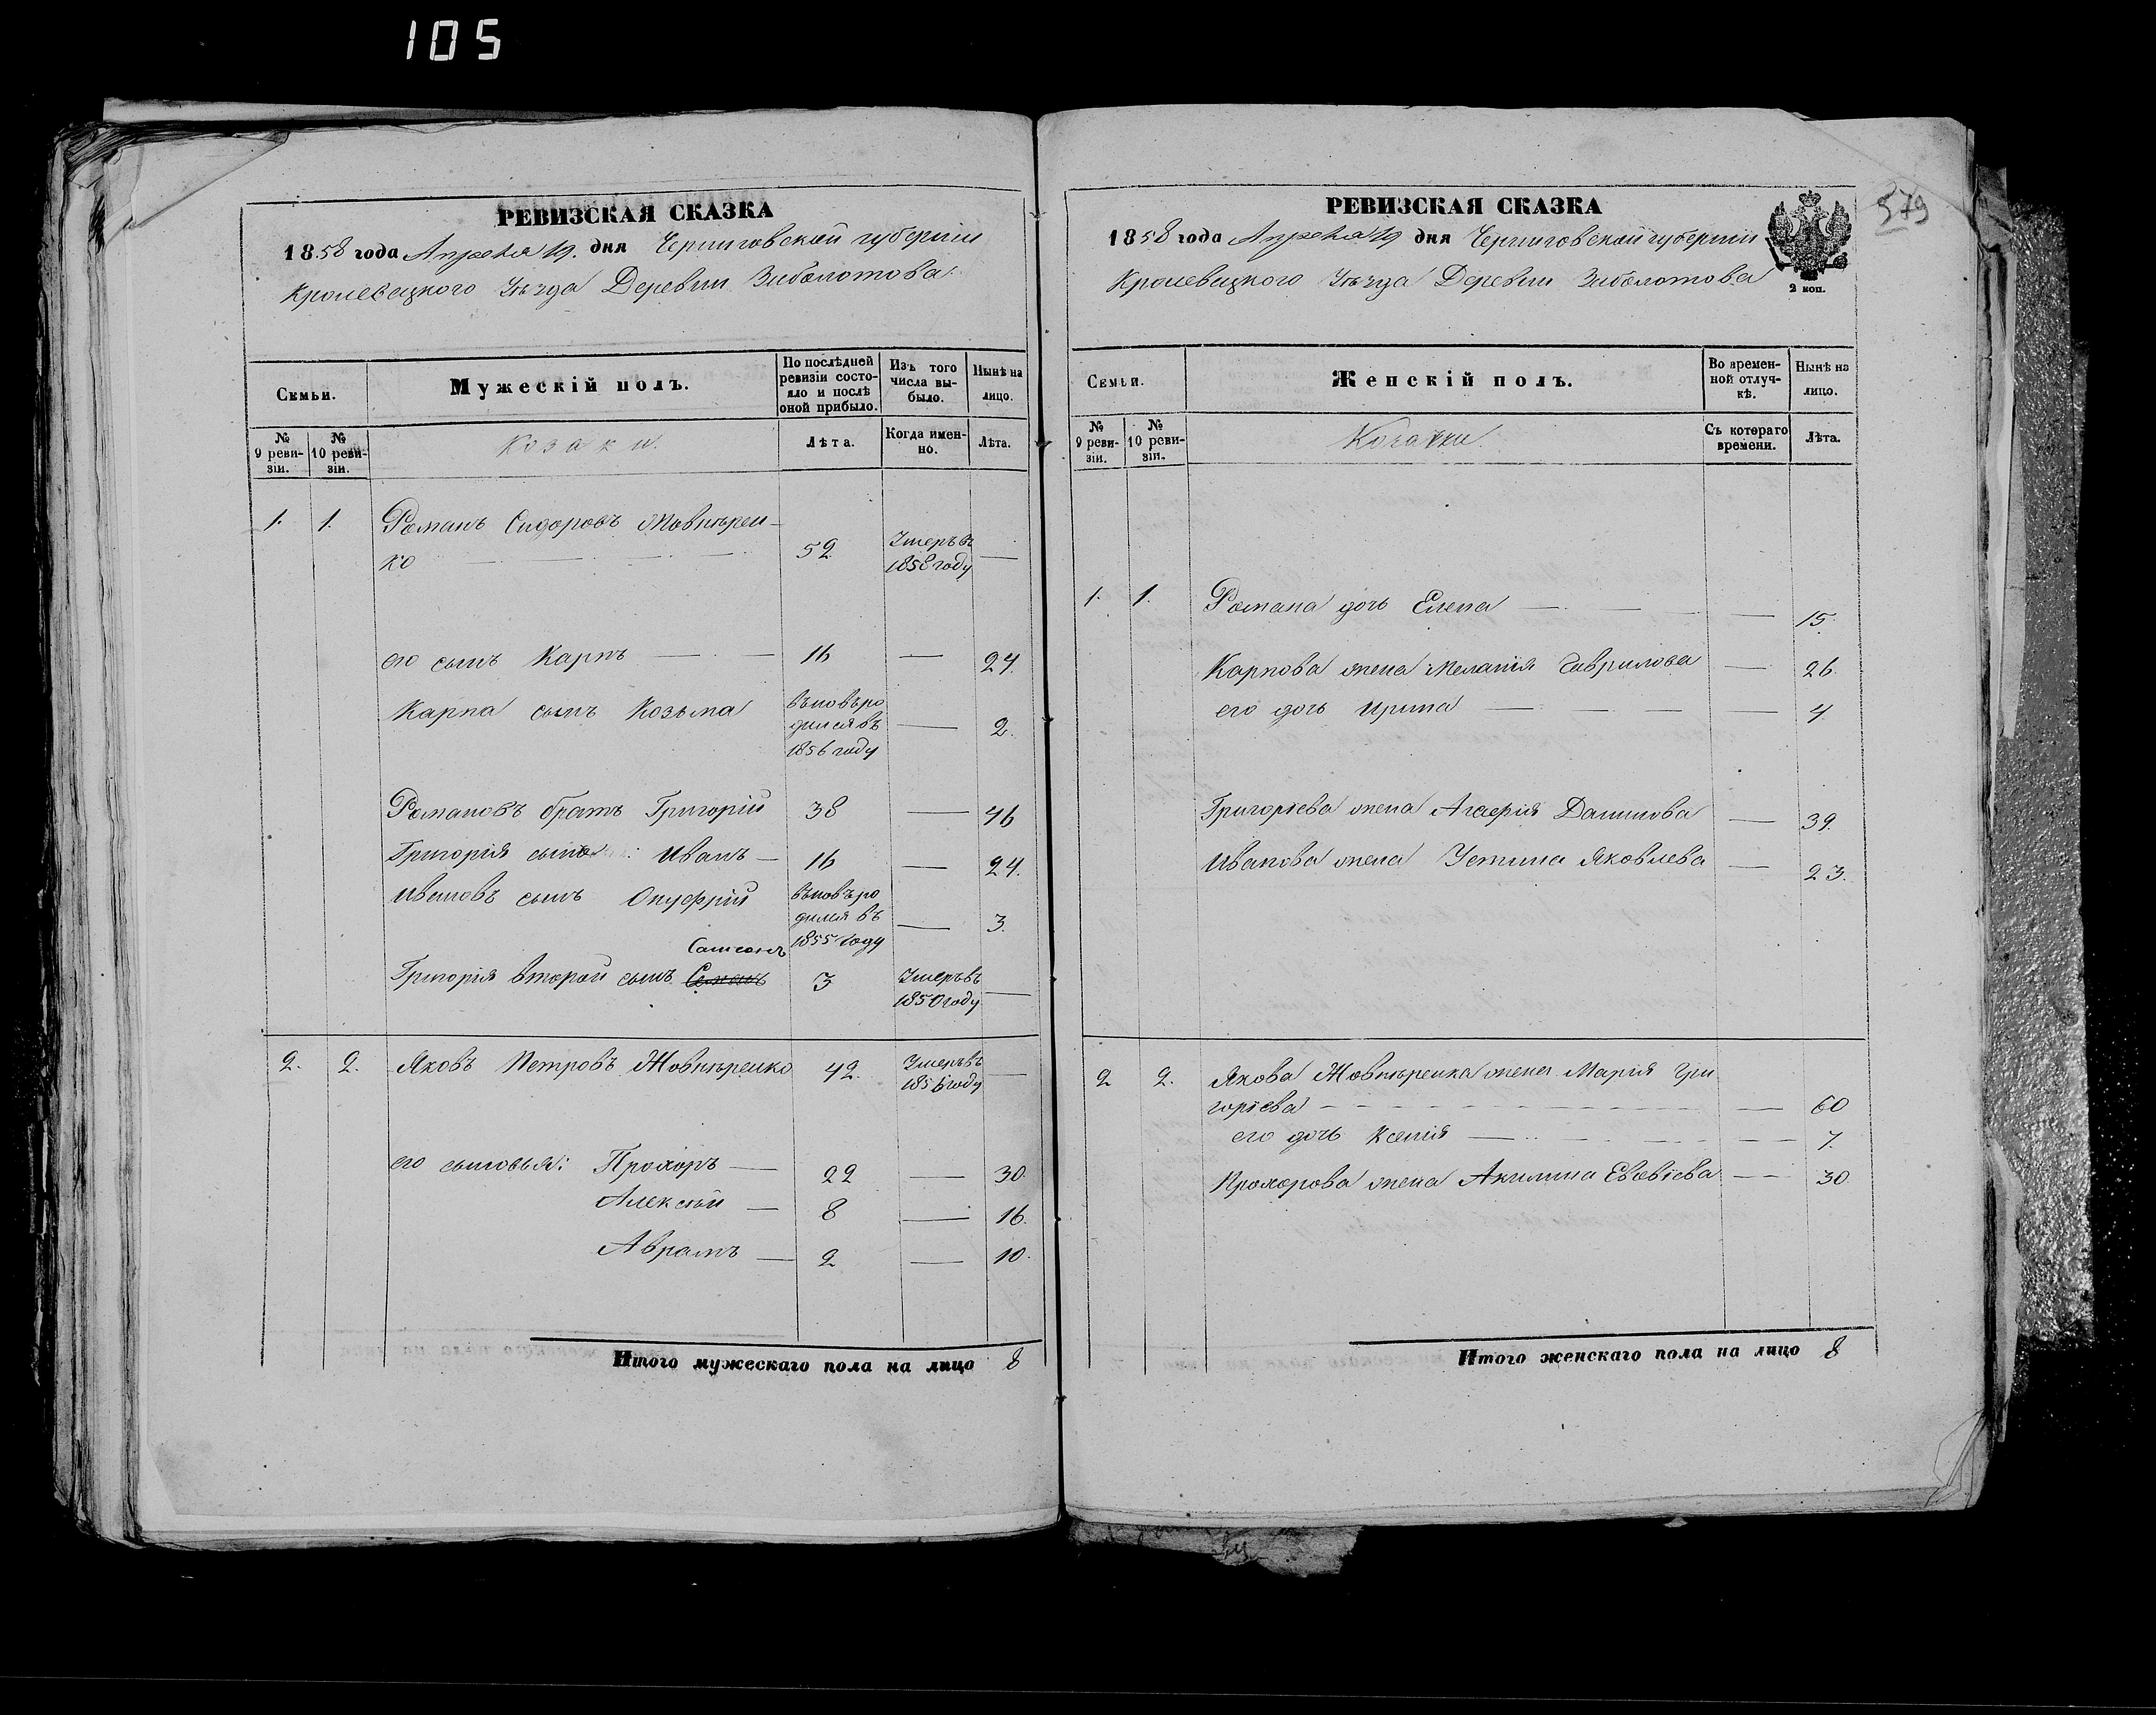 105
РЕВИЗСКАЯ СКАЗКА
1858 года Апреля 19. дня Черниговской губернии
Кролевецкого Уѣзда Деревни Заболотова
Семьи.
Мужескій полъ.
По послѣдней ревизіи состояло и послѣ оной прибыло.
Изъ того числа выбыло.
Нынѣ на лицо.
№ 9 ревизіи.
№ 10 ревизіи.
Козаки.
Лѣта.
Когда именно.
Лѣта.
1. 1. Романъ Сидоровъ Жовнѣрен-
ко — 52 Умеръ въ 1858 году —
его сынъ Карпъ — 16 — 24.
Карпа сынъ Козьма вновь родился въ 1856 году — 2.
Романовъ братъ Григорій 38 — 46
Григорія сынъ: Иванъ — 16 — 24.
Ивановъ сынъ Онуфрій вновь родился въ 1855 году — 3.
Самсонъ
Григорія второй сынъ Семенъ 3 Умеръ въ 1850 году —
2. 2. Яковъ Петровъ Жовнѣренко 42. Умеръ въ 1856 году —
его сыновья: Прохоръ — 22 — 30.
Алексѣй — 8 — 16.
Аврамъ — 2 — 10.
Итого мужескаго пола на лицо 8
РЕВИЗСКАЯ СКАЗКА
1858 года Апреля 19 дня Черниговской губернии
Кролевецкого Уѣзда Деревни Заболотова
2 коп.
579
Семьи.
Женскій полъ.
Во временной отлучкѣ.
Нынѣ на лицо.
№ 9 ревизіи.
№ 10 ревизіи.
Козачки.
Съ котораго времени.
Лѣта.
1. 1. Романа дочь Елена — — 15.
Карпова жена Меланія Гаврилова — 26.
его дочь Ирина — — 4
Григоріева жена Агафія Данилова — 39.
Иванова жена Устина Яковлева — 23.
2 2. Якова Жовнѣренка жена Марія Гри
горіева — — 60
его дочь Ксенія — — 7.
Прохорова жена Акилина Евсѣева — 30.
Итого женскаго пола на лицо 8